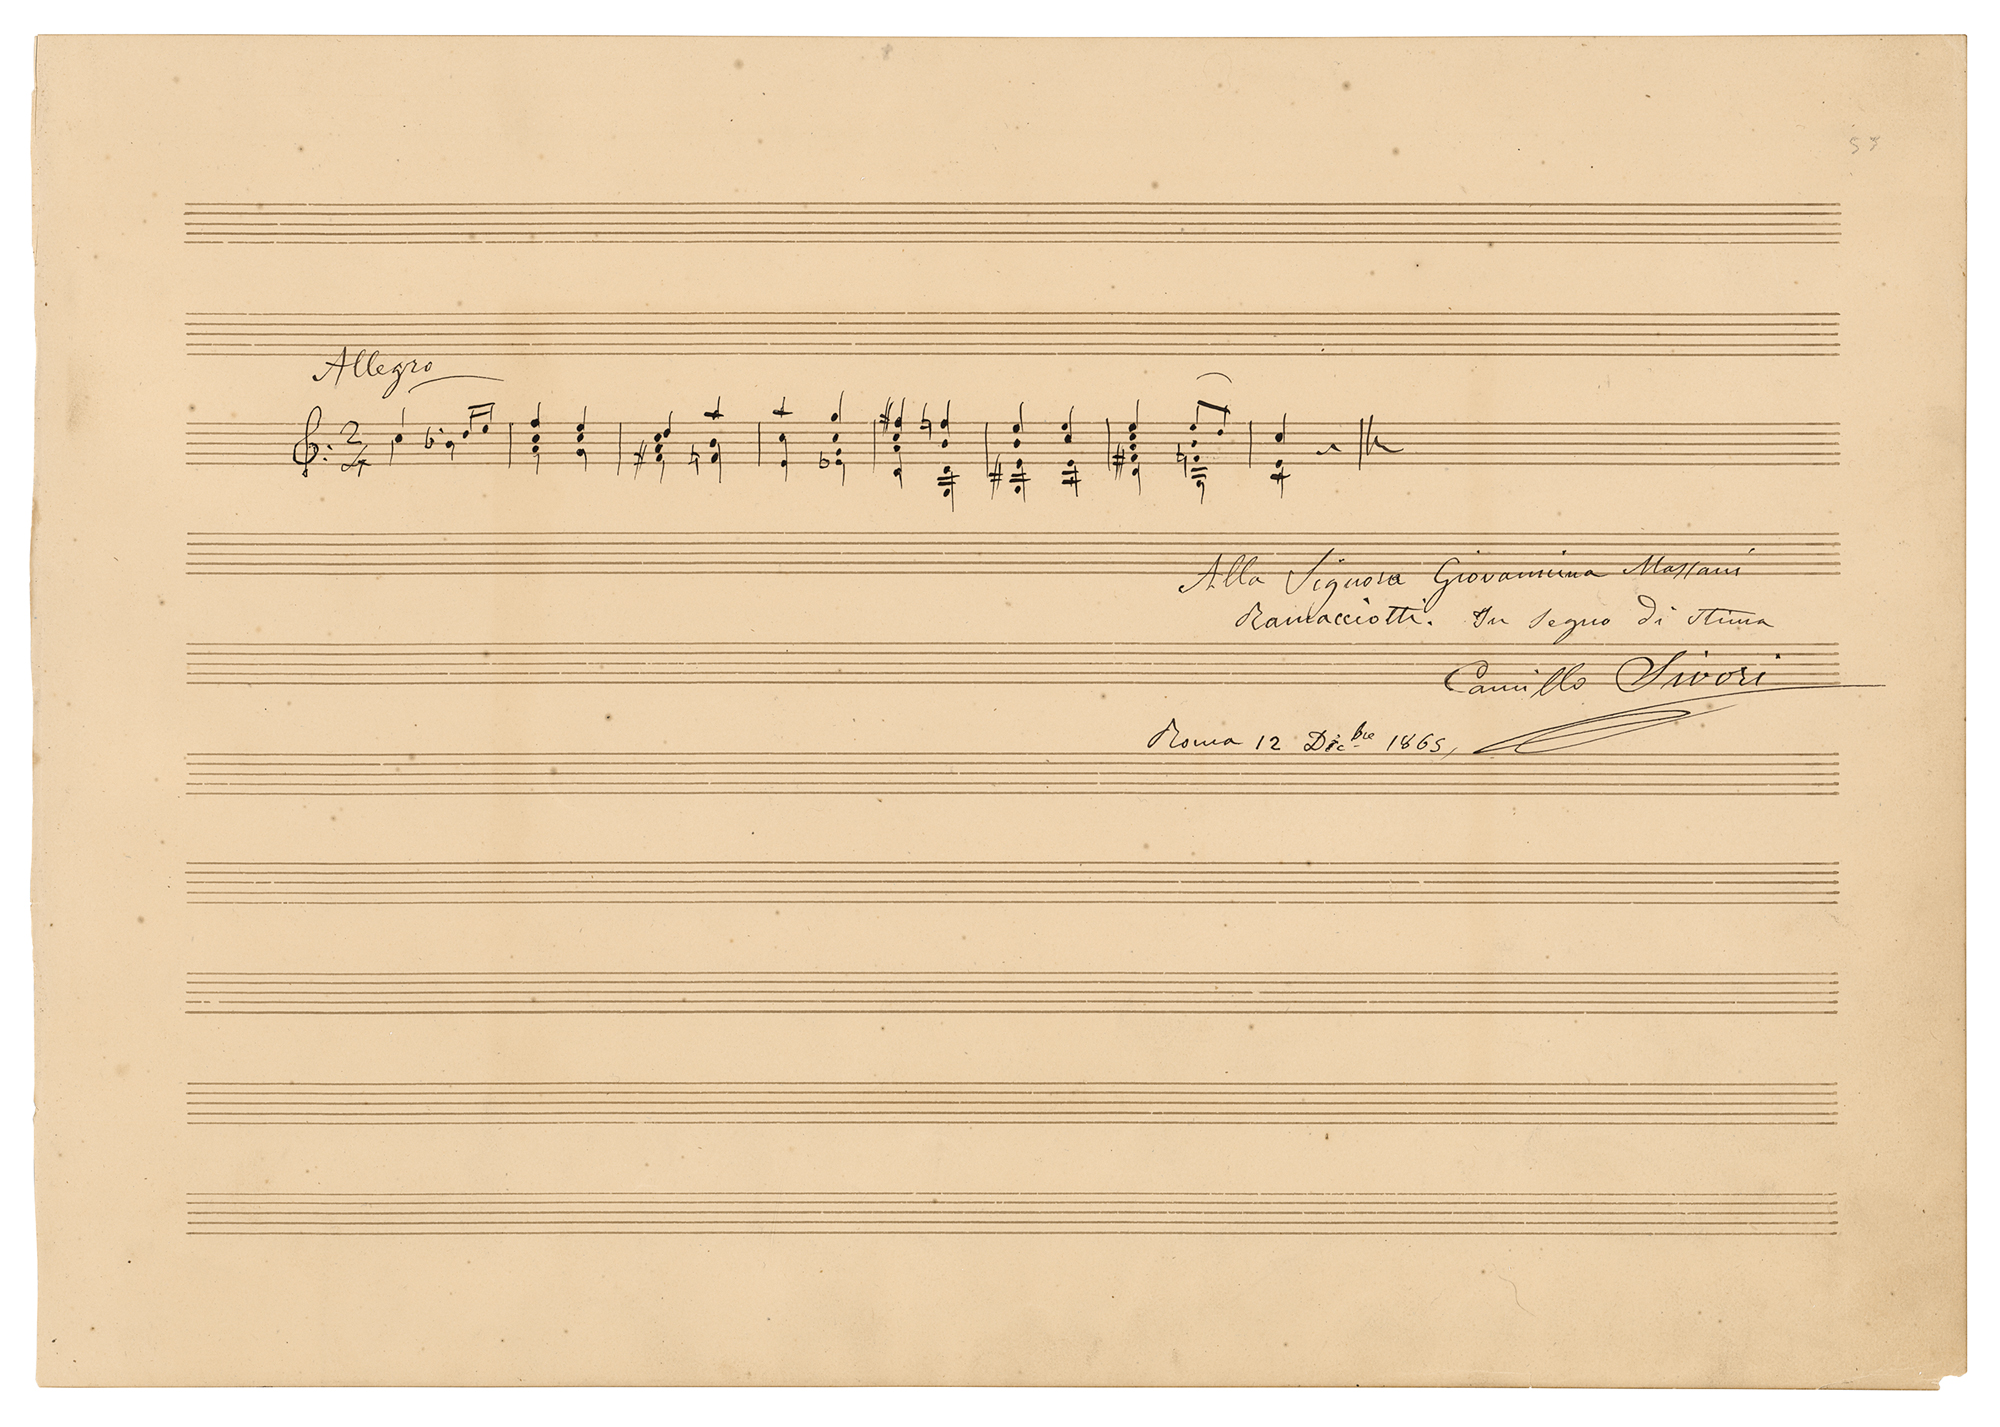 Allegro
2
4
Alla Signora Giovannina Massani
Ramacciotti. In segno di stima
Camillo Sivori
Roma 12 Dic.bre 1865,